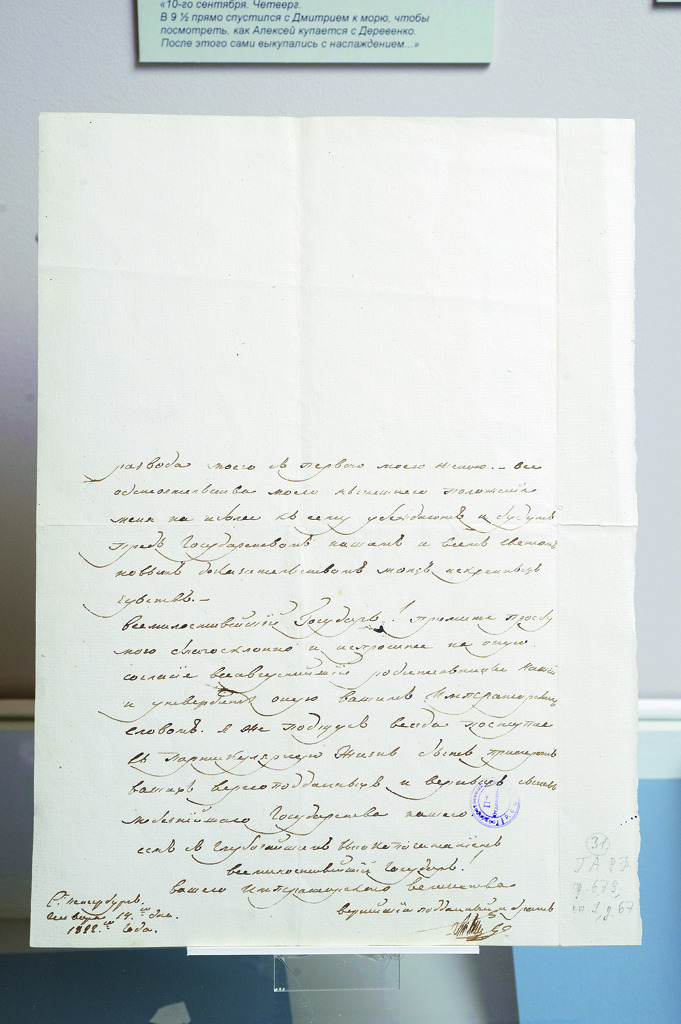 «10-го сентября. Четверг.
В 9 ½ прямо спустился с Дмитрием к морю, чтобы
посмотреть, как Алексей купается с Деревенко.
После этого сами выкупались с наслаждением...»
развода моего с первою моею женою. – все
обстоятельства моего нынешнего положения
меня наиболее къ сему убеждаютъ и будутъ
предъ Государствомъ нашимъ и всемъ светомъ
новымъ доказательствомъ моихъ искреннихъ
чувствъ. –
всемилостивейшій Государь! примите просьбу
мою благосклонно и испросите на оную
согласіе всеавгустейшей родительницы нашей
и утвердите оную вашимъ Императорскимъ
словомъ. я же потщусь всегда поступая
въ партикулярную жизнь быть примеромъ
вашихъ верноподданныхъ и верныхъ сыновъ
любезнейшаго Государства нашего
есмь съ глубочайшимъ высокопочитаніемъ
всемилостивейшій Государь!
вашего Императорского величества
вернейшій подданный и братъ
С. Петербургъ.
генваря 14.го дня
1822.го года.
(31)
ф. 679
оп. 1, д. 67